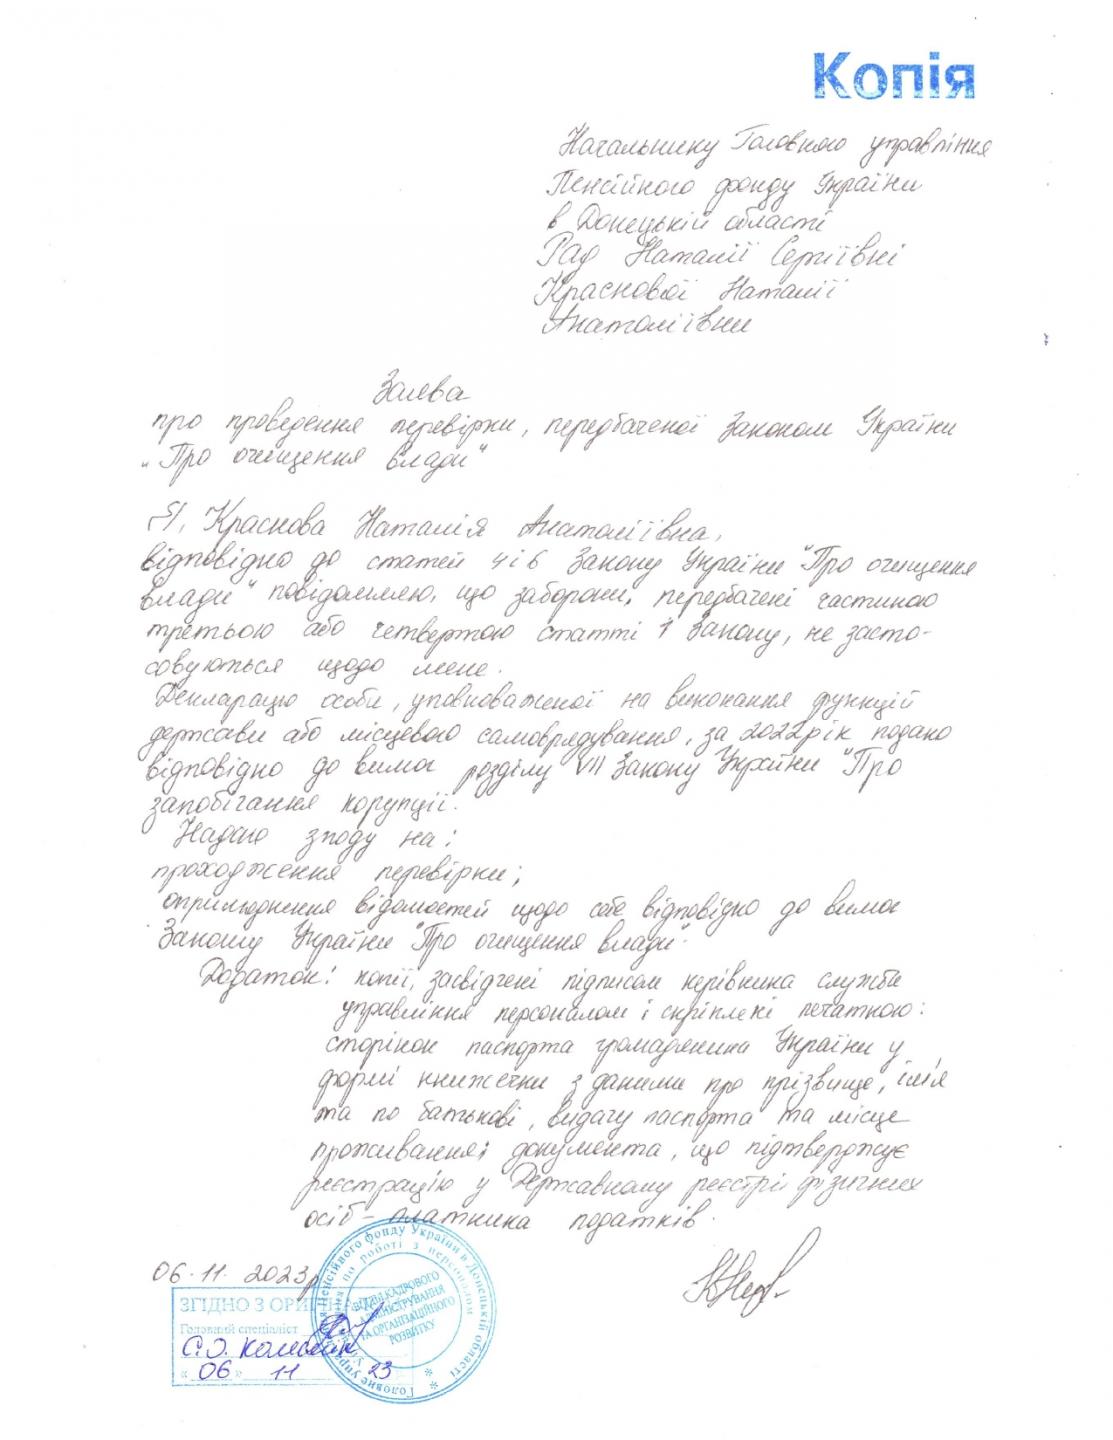 Копія
Начальнику Головного управління
Пенсійного фонду України
в Донецькій області
Рад Наталії Сергіївні
Краснової Наталії
Анатоліївни
Заява
про проведення перевірки, передбаченої Законом України
„Про очищення влади"
Я, Краснова Наталія Анатоліївна,
відповідно до статей 4 і 6 Закону України "Про очищення
влади" повідомляю, що заборони, передбачені частиною
третьою або четвертою статті 1 Закону, не засто-
совуються щодо мене.
Декларацію особи, уповноваженої на виконання функцій
держави або місцевого самоврядування, за 2022 рік подано
відповідно до вимог розділу VII Закону України "Про
запобігання корупції".
Надаю згоду на:
проходження перевірки;
оприлюднення відомостей щодо себе відповідно до вимог
Закону України "Про очищення влади".
Додаток: копії, засвідчені підписом керівника служби
управління персоналом і скріплені печаткою:
сторінок паспорта громадянина України у
формі книжечки з даними про прізвище, ім'я
та по батькові, видачу паспорта та місце
проживання; документа, що підтверджує
реєстрацію у Державному реєстрі фізичних
осіб - платника податків.
06.11.2023р
ЗГІДНО З
Головний спеціаліст
С.О.
« 06 » 11 23
Головне управління Пенсійного фонду України в Донецькій області
по роботі з персоналом
ВІДДІЛ КАДРОВОГО
АДМІНІСТРУВАННЯ
ТА ОРГАНІЗАЦІЙНОГО
РОЗВИТКУ